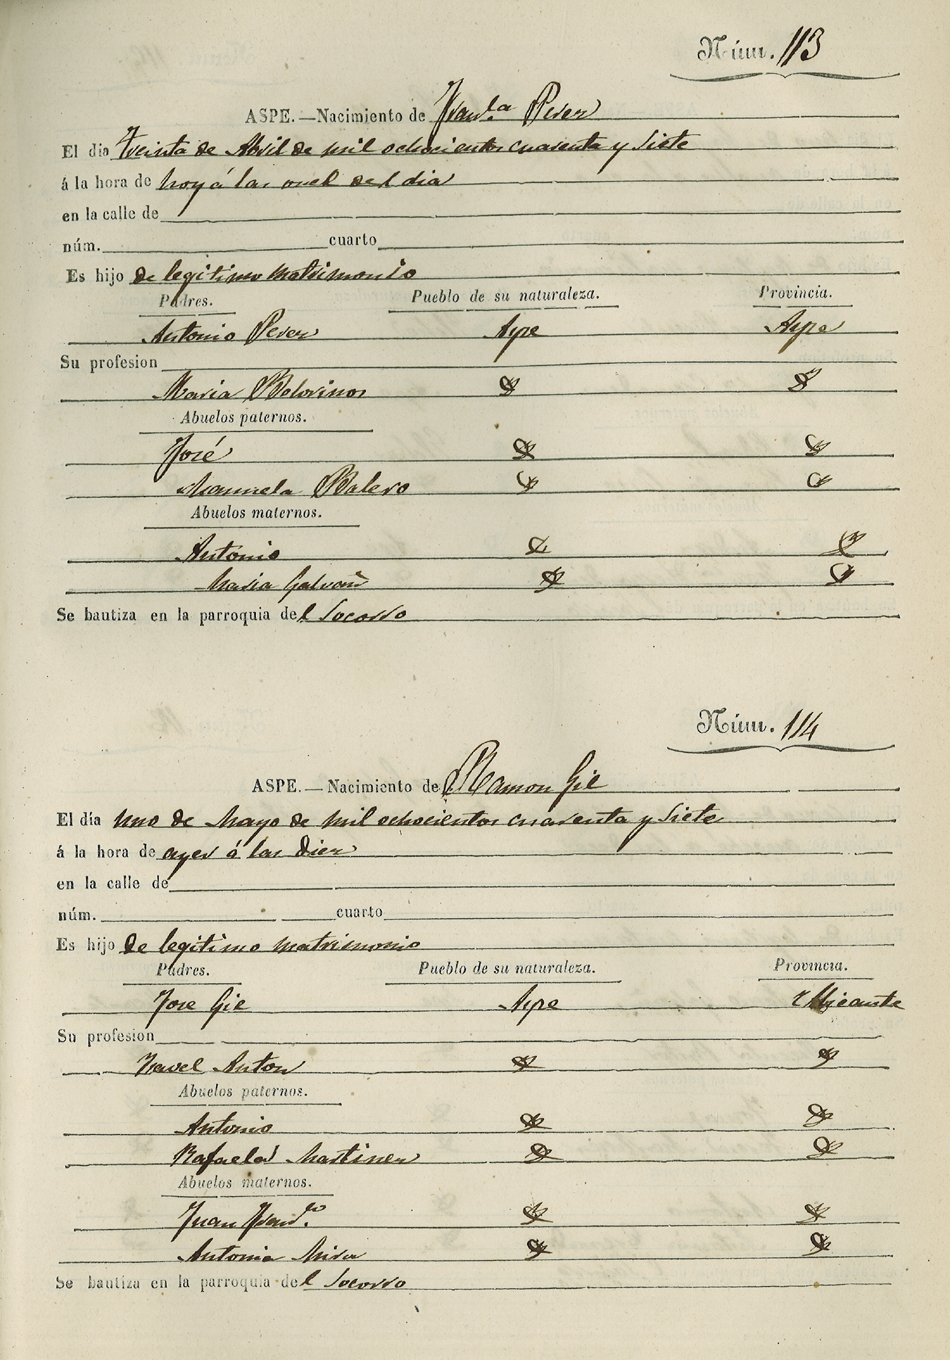 Núm. 113
ASPE.—Nacimiento de Fran.ca Perez
El dia Treinta de Abril de mil ochocientos cuarenta y Siete
á la hora de hoy á las once del dia
en la calle de
núm. cuarto
Es hijo de legitimo matrimonio
Padres. Pueblo de su naturaleza. Provincia.
Antonio Perez Aspe Aspe
Su profesion
Maria
Abuelos paternos.
José
Manuela Balero
Abuelos maternos.
Antonio
Maria Galvañ
Se bautiza en la parroquia del Socorro
Núm. 114
ASPE.—Nacimiento de Ramon Gil
El día uno de Mayo de mil ochocientos cuarenta y Siete
á la hora de ayer á las Diez
en la calle de
núm. cuarto
Es hijo de legitimo matrimonio
Padres. Pueblo de su naturaleza. Provincia.
Jose Gil Aspe Alicante
Su profesion
Anton
Abuelos paternos.
Antonio
Rafaela Martinez
Abuelos maternos.
Juan Fran.co
Antonia Mira
Se bautiza en la parroquia del Socorro